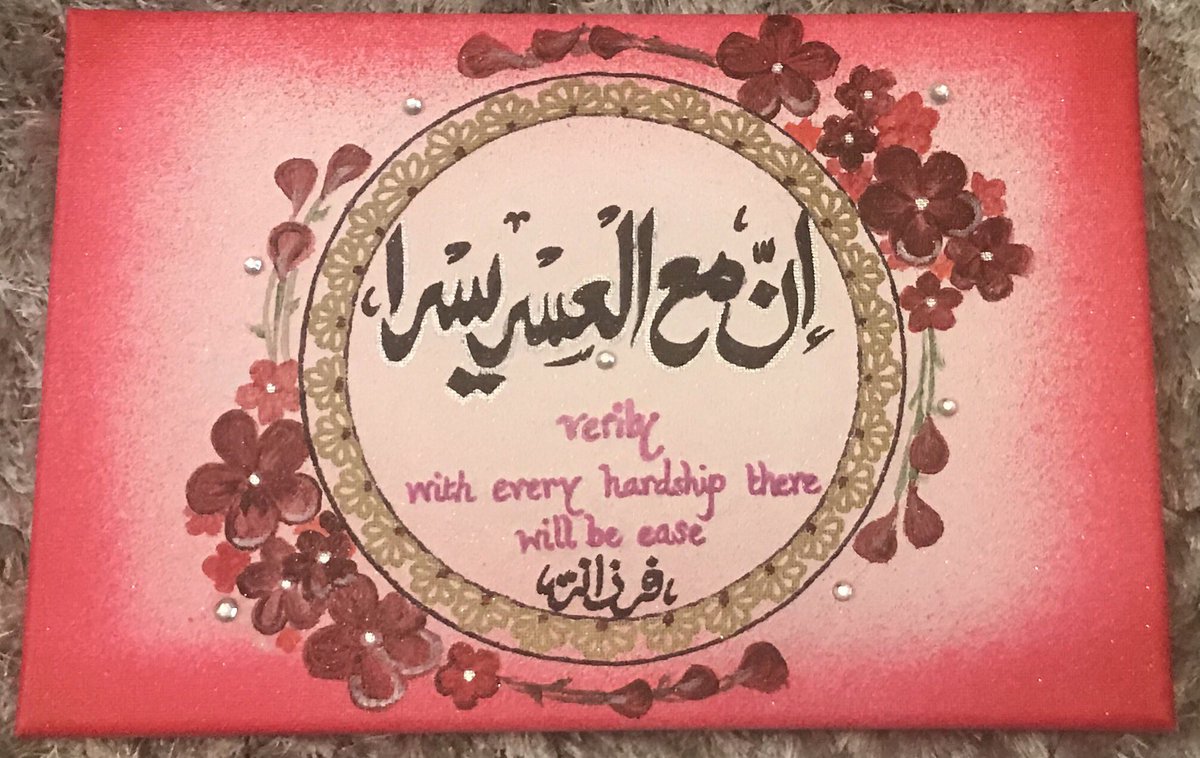 إنّ مع العسر يسرا
verily
with every hardship there
will be ease
فرزانہ